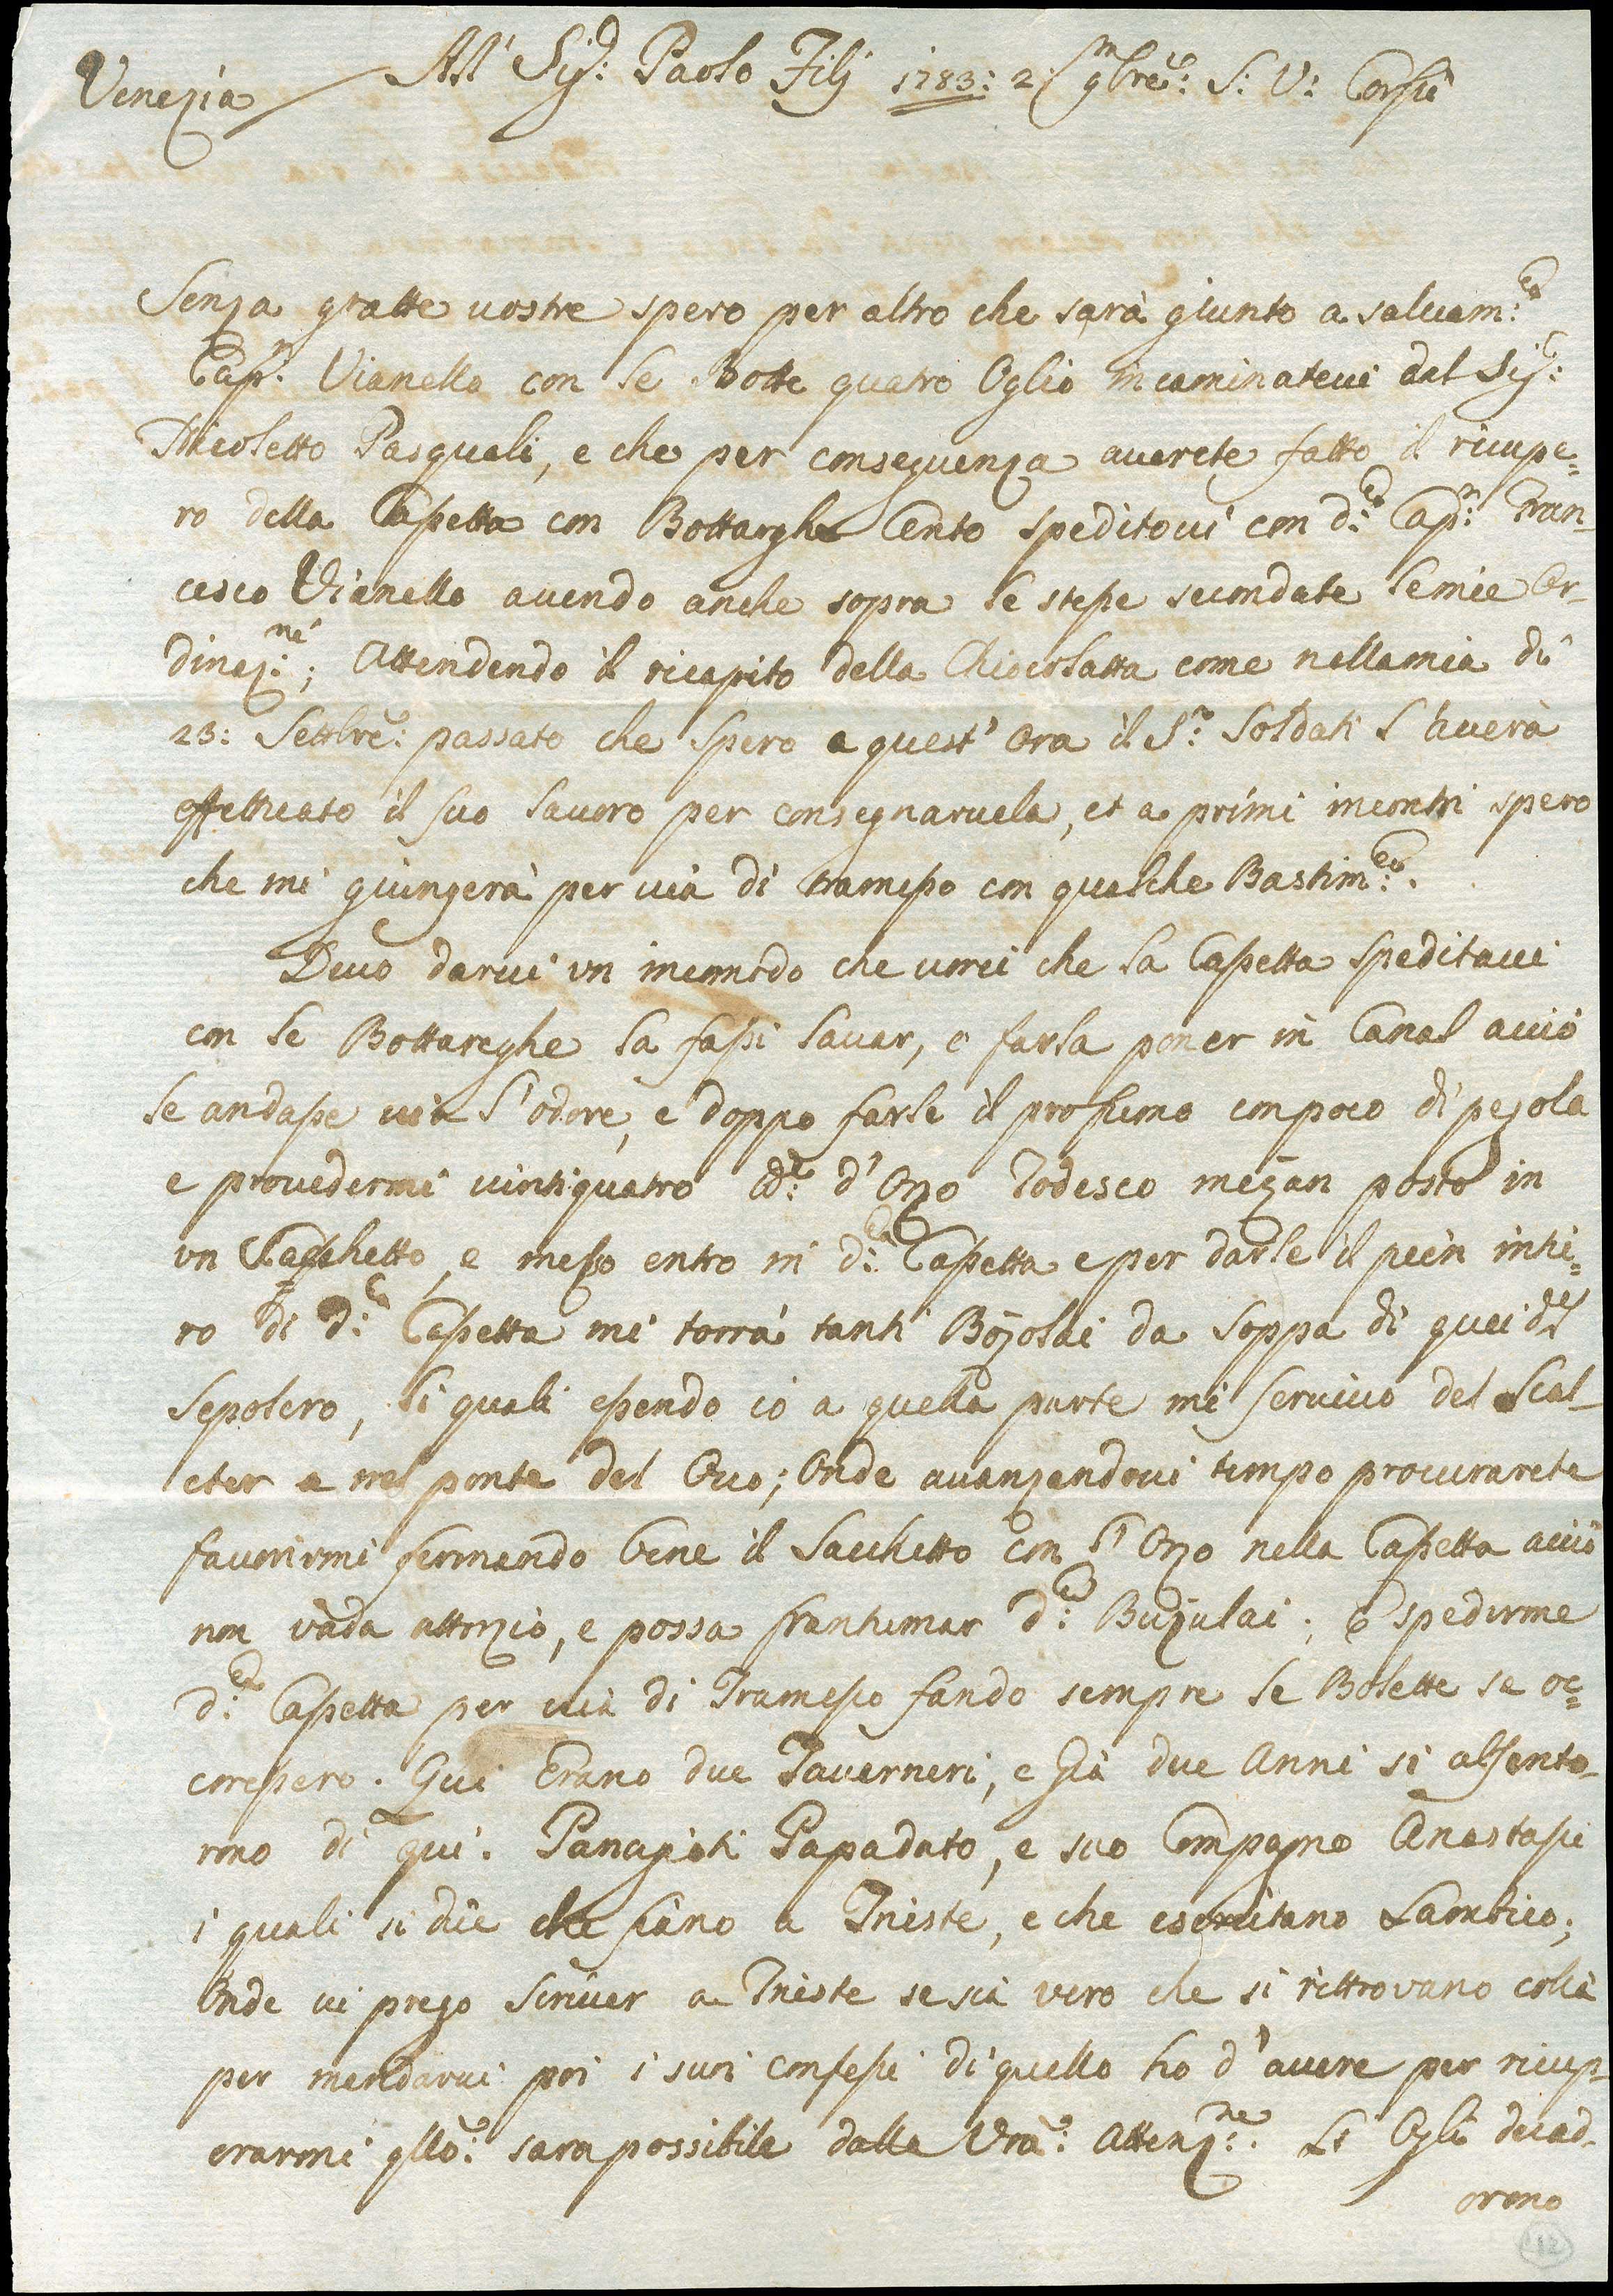 Venezia All' Sig.r Paolo Filj 1783: 2: 9mbre: S: V: Corfù
Senza gratte vostre spero per altro che sarà giunto a salvam:to
Cap:n Vianello con le Botte quatro Oglio incaminatevi dal Sig:r
Nicoletto Pasquali, e che per conseguenza averete fatto il ricupe=
ro della Cassetta con Bottarghe Cento speditovi con d:to Cap:n Fran-
cesco Vianello avendo anche sopra le stesse secondate le mie Or-
dinaz:ni; Attendendo il ricapito della Chiocolatta come nella mia di
23: Settbre: passato che spero a quest' Ora il S:r Soldati l' haverà
effettuato il suo lavoro per consegnarvela, et a primi incontri spero
che mi giungerà per via di tramesso con qualche Bastim:to.
Devo darvi un incomodo che vorei che la Cassetta speditavi
con le Bottareghe la fassi lavar, e farla poner in Canal acciò
le andasse via l' odore, e doppo farle il profumo con poco di pegola
e provedermi vintiquatro d' Orzo Todesco mezan posto in
un Sacchetto, e messo entro in d:ta Cassetta e per darle il peèn intie=
ro di d:ta Cassetta mi torrà tanti Bozolai da soppa di quei del
Sepolcro, li quali essendo io a quella parte mi servivo del Scal-
eter a nel ponte del Ovo; Onde avanzandovi tempo procurarete
favorirmi fermando bene il Sacchetto con l' Orzo nella Cassetta acciò
non vada attorzio, e possa frantumar d:ti Buzulai; e spedirme
d:ta Cassetta per via di Tramesso fando sempre le Bolette se oc=
coressero. Qui Erano due Taverneri, e Già due Anni si alsento-
rono di qui. Panagioti Papadato, e suo Compagno Anastassi
i quali si dice che siano a Trieste, e che esercitano Lambico;
Onde vi prego scriver a Trieste se sia vero che si rittrovano colla
per mandarvi poi i suoi confessi di quello ho d' avere per ricup-
erarmi qllo: sara possibile dalla Vra: Attenz:ne. Li Ogli decad-
orono
112